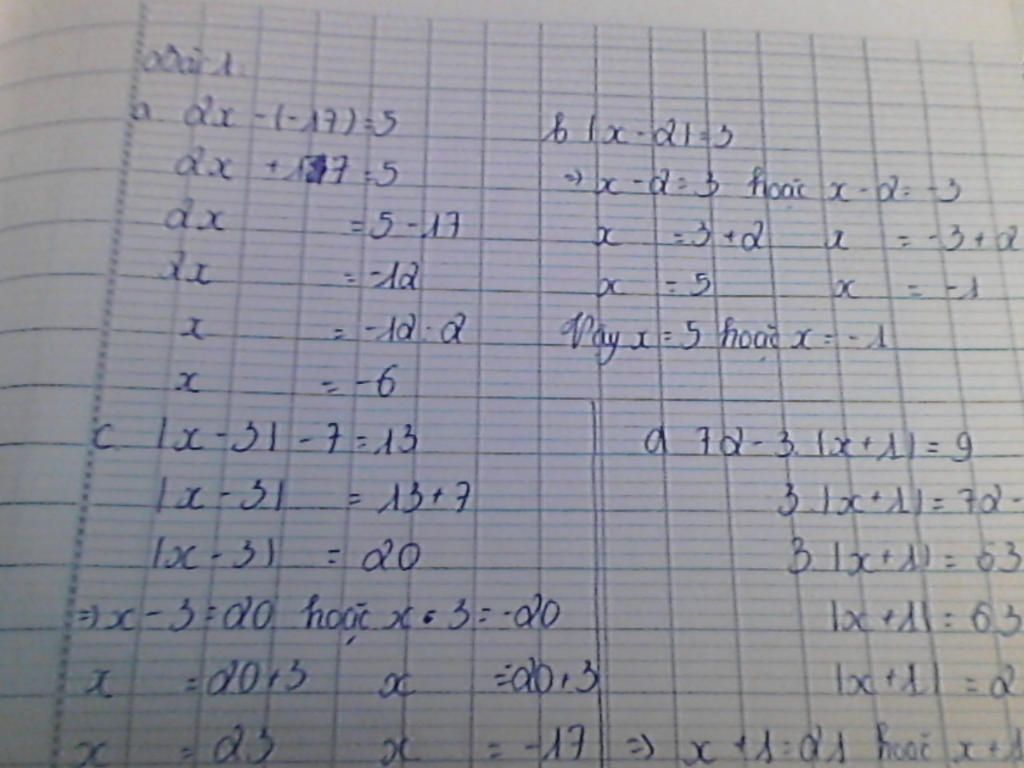 Bài 1.
a. 2x - (-17) = 5
2x + 17 = 5
2x = 5 - 17
2x = -12
x = -12 : 2
x = -6
b. |x - 2| = 3
=> x - 2 = 3 hoặc x - 2 = -3
x = 3 + 2 x = -3 + 2
x = 5 x = -1
Vậy x = 5 hoặc x = -1
c. |x - 3| - 7 = 13
|x - 3| = 13 + 7
|x - 3| = 20
=> x - 3 = 20 hoặc x - 3 = -20
x = 20 + 3 x = -20 + 3
x = 23 x = -17
d 72 - 3. |x + 1| = 9
3. |x + 1| = 72 -
3. |x + 1| = 63
|x + 1| = 63
|x + 1| = 2
=> x + 1 = 21 hoặc x + 1